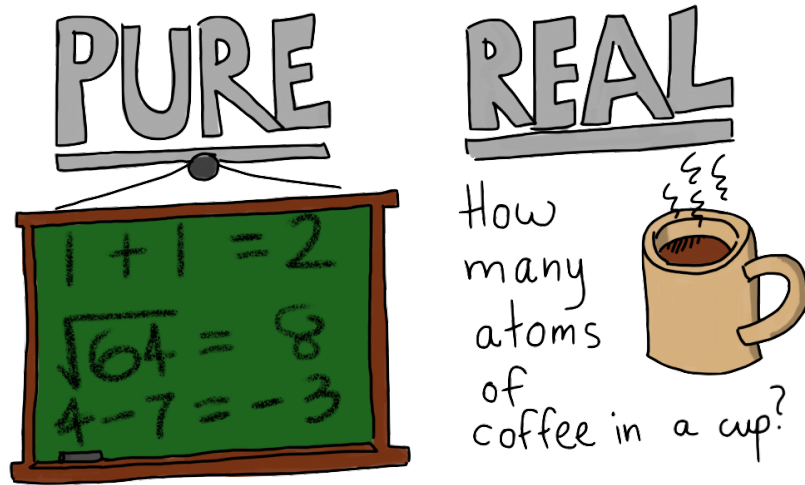 PURE
1 + 1 = 2
√64 = 8
4 - 7 = - 3
REAL
How
many
atoms
of
coffee in a cup?